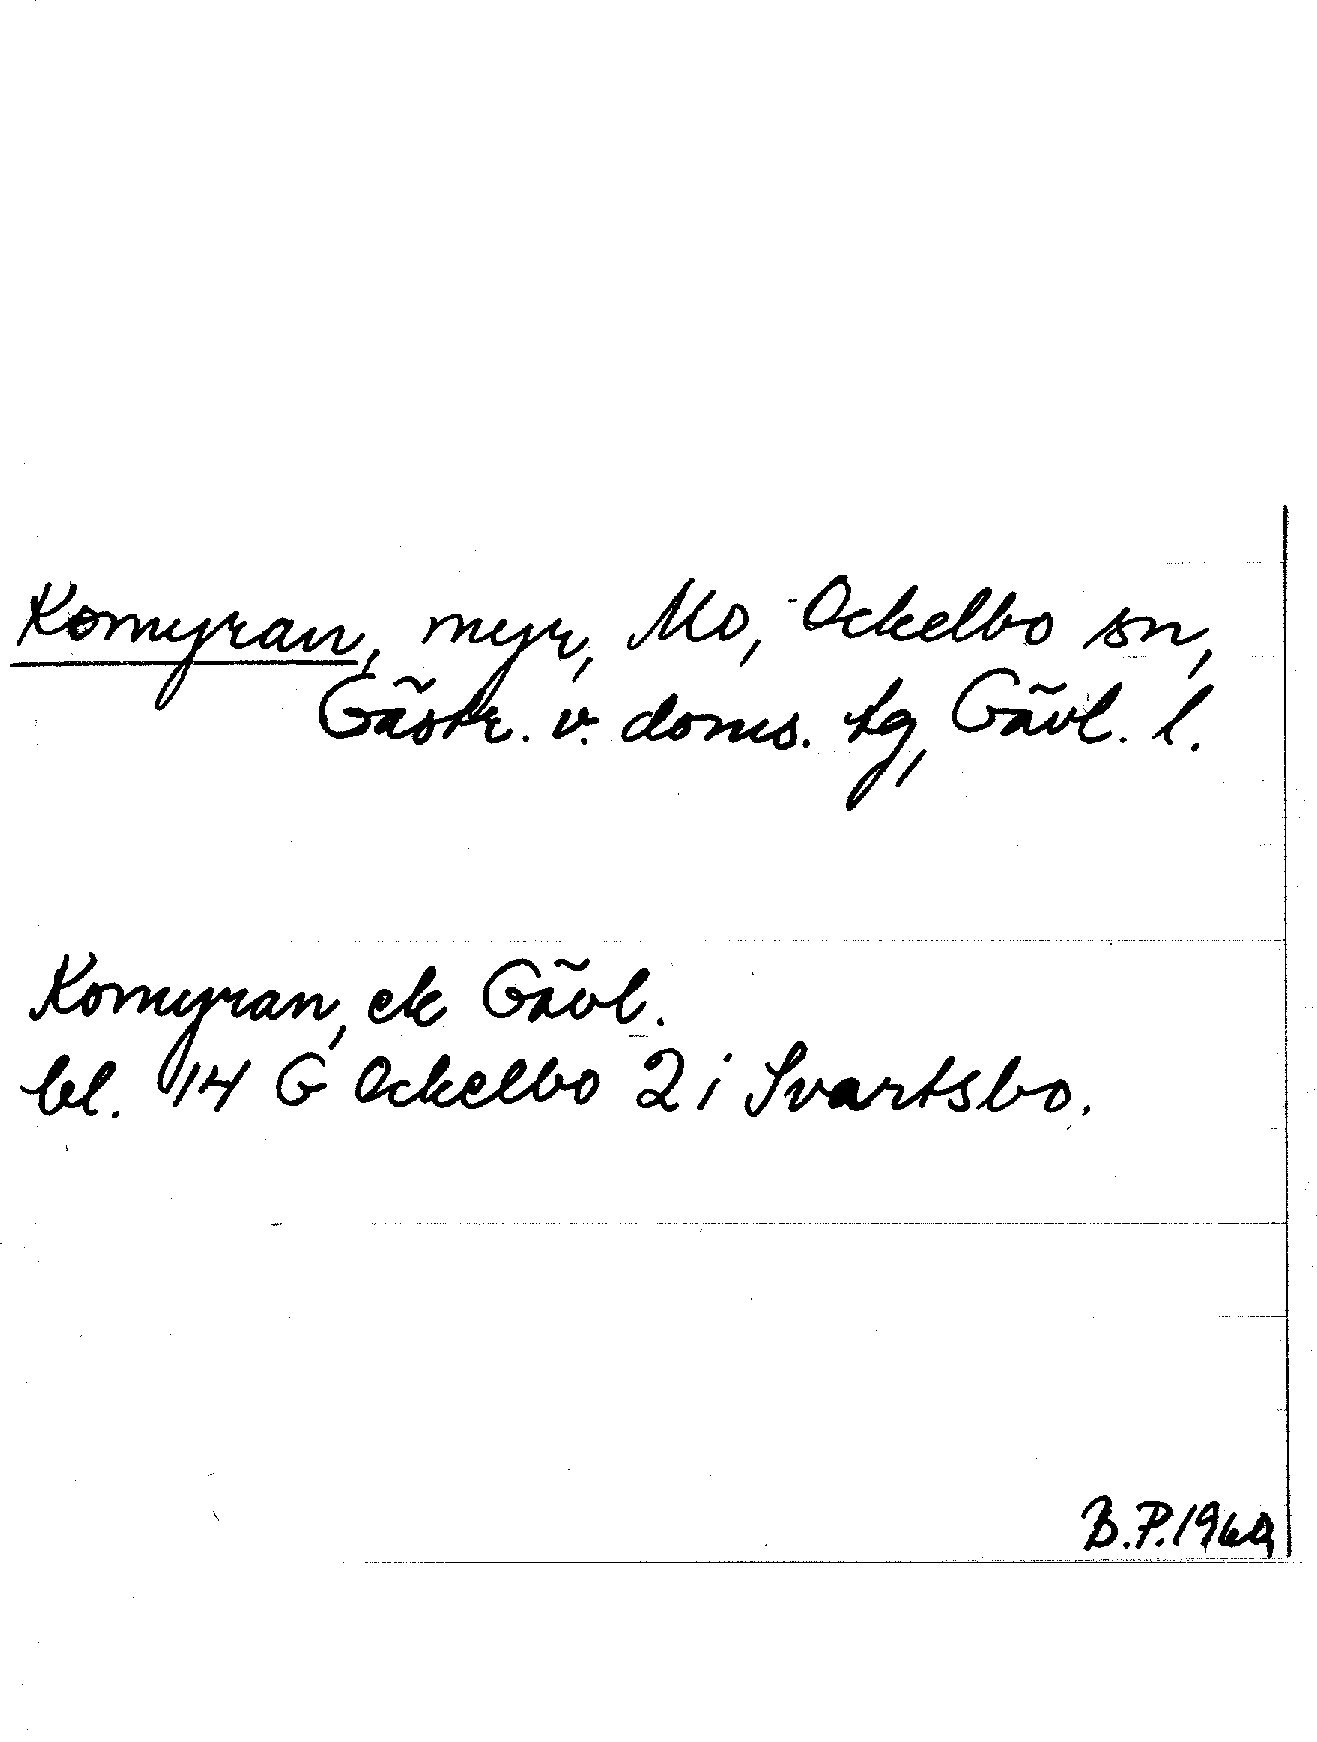 Komyran, myr, Mo, Ockelbo sn,
Gästr. v. doms. tg, Gävl. l.
Komyran, ek Gävl.
bl. 14 G Ockelbo 2 i Svartsbo.
B.P. 1969